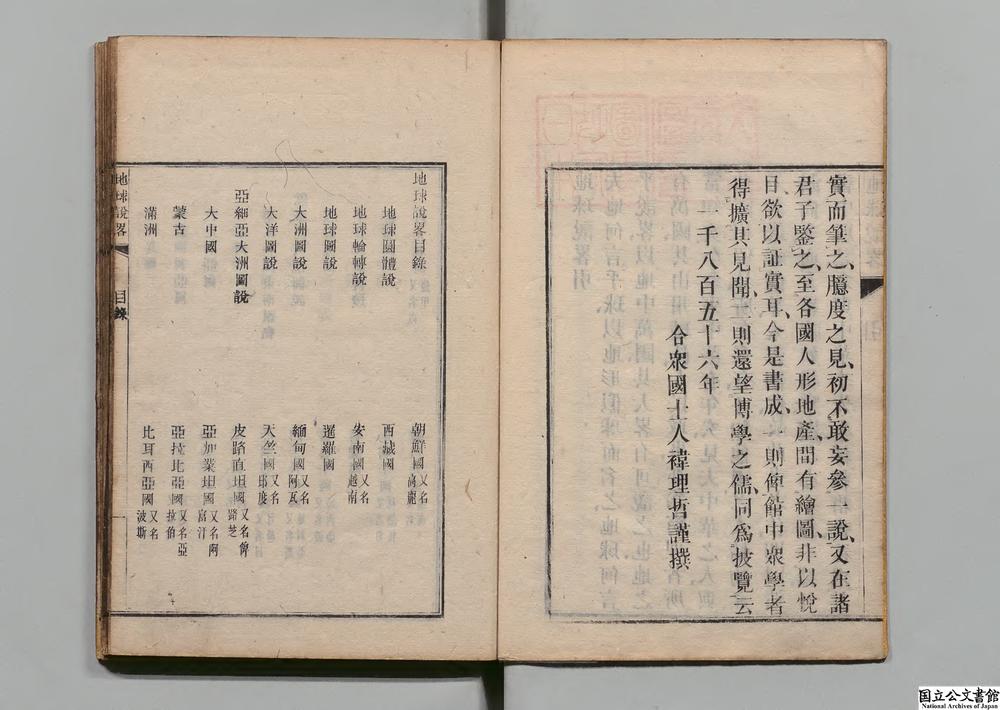 實而筆之、臆度之見、初不敢妄參一說、又在諸
君子鑒之、至各國人形地產、間有繪圖、非以悅
目、欲以証實耳、今是書成、一則俾館中衆學者
得擴其見聞、一則還望博學之儒、同爲披覽云
一千八百五十六年
合衆國士人褘理哲謹撰
地球說畧目錄
地球圜體說
地球輪轉說
地球圖說
大洲圖說
大洋圖說
亞細亞大洲圖說
大中國
蒙古
滿洲
朝鮮國又名高麗
西域國
安南國又名越南
暹羅國
緬甸國又名阿瓦
天竺國又名印度
皮路直坦國又名俾路芝
亞加業坦國又名阿富汗
亞拉比亞國又名亞拉伯
比耳西亞國又名波斯
地球說畧
目錄
一
国立公文書館
National Archives of Japan